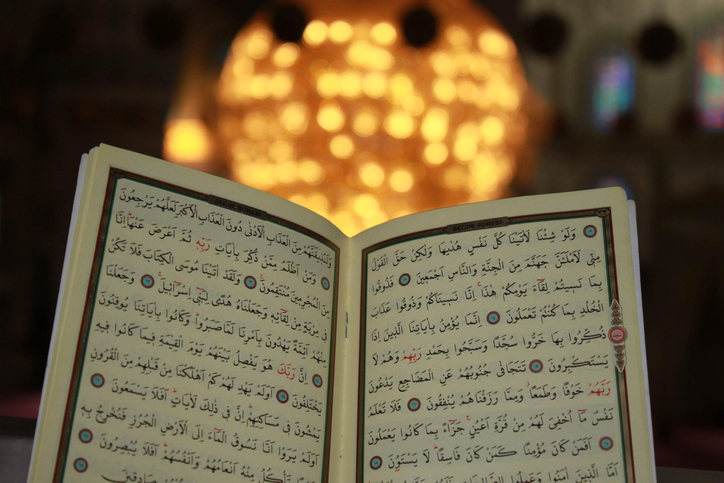 وَلَوْ شِئْنَا لَاٰتَيْنَا كُلَّ نَفْسٍ هُدٰيهَا وَلٰكِنْ حَقَّ الْقَوْلُ
مِنّ۪ي لَاَمْلَـَٔنَّ جَهَنَّمَ مِنَ الْجِنَّةِ وَالنَّاسِ اَجْمَع۪ينَ فَذُوقُوا
بِمَا نَس۪يتُمْ لِقَٓاءَ يَوْمِكُمْ هٰذَاۚ اِنَّا نَس۪ينَاكُمْ وَذُوقُوا عَذَابَ
الْخُلْدِ بِمَا كُنْتُمْ تَعْمَلُونَ اِنَّمَا يُؤْمِنُ بِاٰيَاتِنَا الَّذ۪ينَ اِذَا
ذُكِّرُوا بِهَا خَرُّوا سُجَّدًا وَسَبَّحُوا بِحَمْدِ رَبِّهِمْ وَهُمْ لَا
يَسْتَكْبِرُونَ تَتَجَافٰى جُنُوبُهُمْ عَنِ الْمَضَاجِعِ يَدْعُونَ
رَبَّهُمْ خَوْفًا وَطَمَعًاۘ وَمِمَّا رَزَقْنَاهُمْ يُنْفِقُونَ فَلَا تَعْلَمُ
نَفْسٌ مَٓا اُخْفِيَ لَهُمْ مِنْ قُرَّةِ اَعْيُنٍۚ جَزَٓاءً بِمَا كَانُوا يَعْمَلُونَ
اَفَمَنْ كَانَ مُؤْمِنًا كَمَنْ كَانَ فَاسِقًاۜ لَا يَسْتَوُ۫نَ
اَمَّا الَّذ۪ينَ اٰمَنُوا وَعَمِلُوا
وَلَنُذ۪يقَنَّهُمْ مِنَ الْعَذَابِ الْاَدْنٰى دُونَ الْعَذَابِ الْاَكْبَرِ لَعَلَّهُمْ يَرْجِعُونَ
وَمَنْ اَظْلَمُ مِمَّنْ ذُكِّرَ بِاٰيَاتِ رَبِّه۪ ثُمَّ اَعْرَضَ عَنْهَاۜ اِنَّا
مِنَ الْمُجْرِم۪ينَ مُنْتَقِمُونَ وَلَقَدْ اٰتَيْنَا مُوسَى الْكِتَابَ فَلَا تَكُنْ
ف۪ي مِرْيَةٍ مِنْ لِقَٓائِه۪ وَجَعَلْنَاهُ هُدًى لِبَن۪ٓي اِسْرَٓاء۪يلَۚ وَجَعَلْنَا
مِنْهُمْ اَئِمَّةً يَهْدُونَ بِاَمْرِنَا لَمَّا صَبَرُواۜ وَكَانُوا بِاٰيَاتِنَا يُوقِنُونَ
اِنَّ رَبَّكَ هُوَ يَفْصِلُ بَيْنَهُمْ يَوْمَ الْقِيٰمَةِ ف۪يمَا كَانُوا ف۪يهِ
يَخْتَلِفُونَ اَوَلَمْ يَهْدِ لَهُمْ كَمْ اَهْلَكْنَا مِنْ قَبْلِهِمْ مِنَ الْقُرُونِ
يَمْشُونَ ف۪ي مَسَاكِنِهِمْۜ اِنَّ ف۪ي ذٰلِكَ لَاٰيَاتٍۜ اَفَلَا يَسْمَعُونَ
اَوَلَمْ يَرَوْا اَنَّا نَسُوقُ الْمَٓاءَ اِلَى الْاَرْضِ الْجُرُزِ فَنُخْرِجُ بِه۪
زَرْعًا تَأْكُلُ مِنْهُ اَنْعَامُهُمْ وَاَنْفُسُهُمْۜ اَفَلَا يُبْصِرُونَ
صَادِق۪ينَ